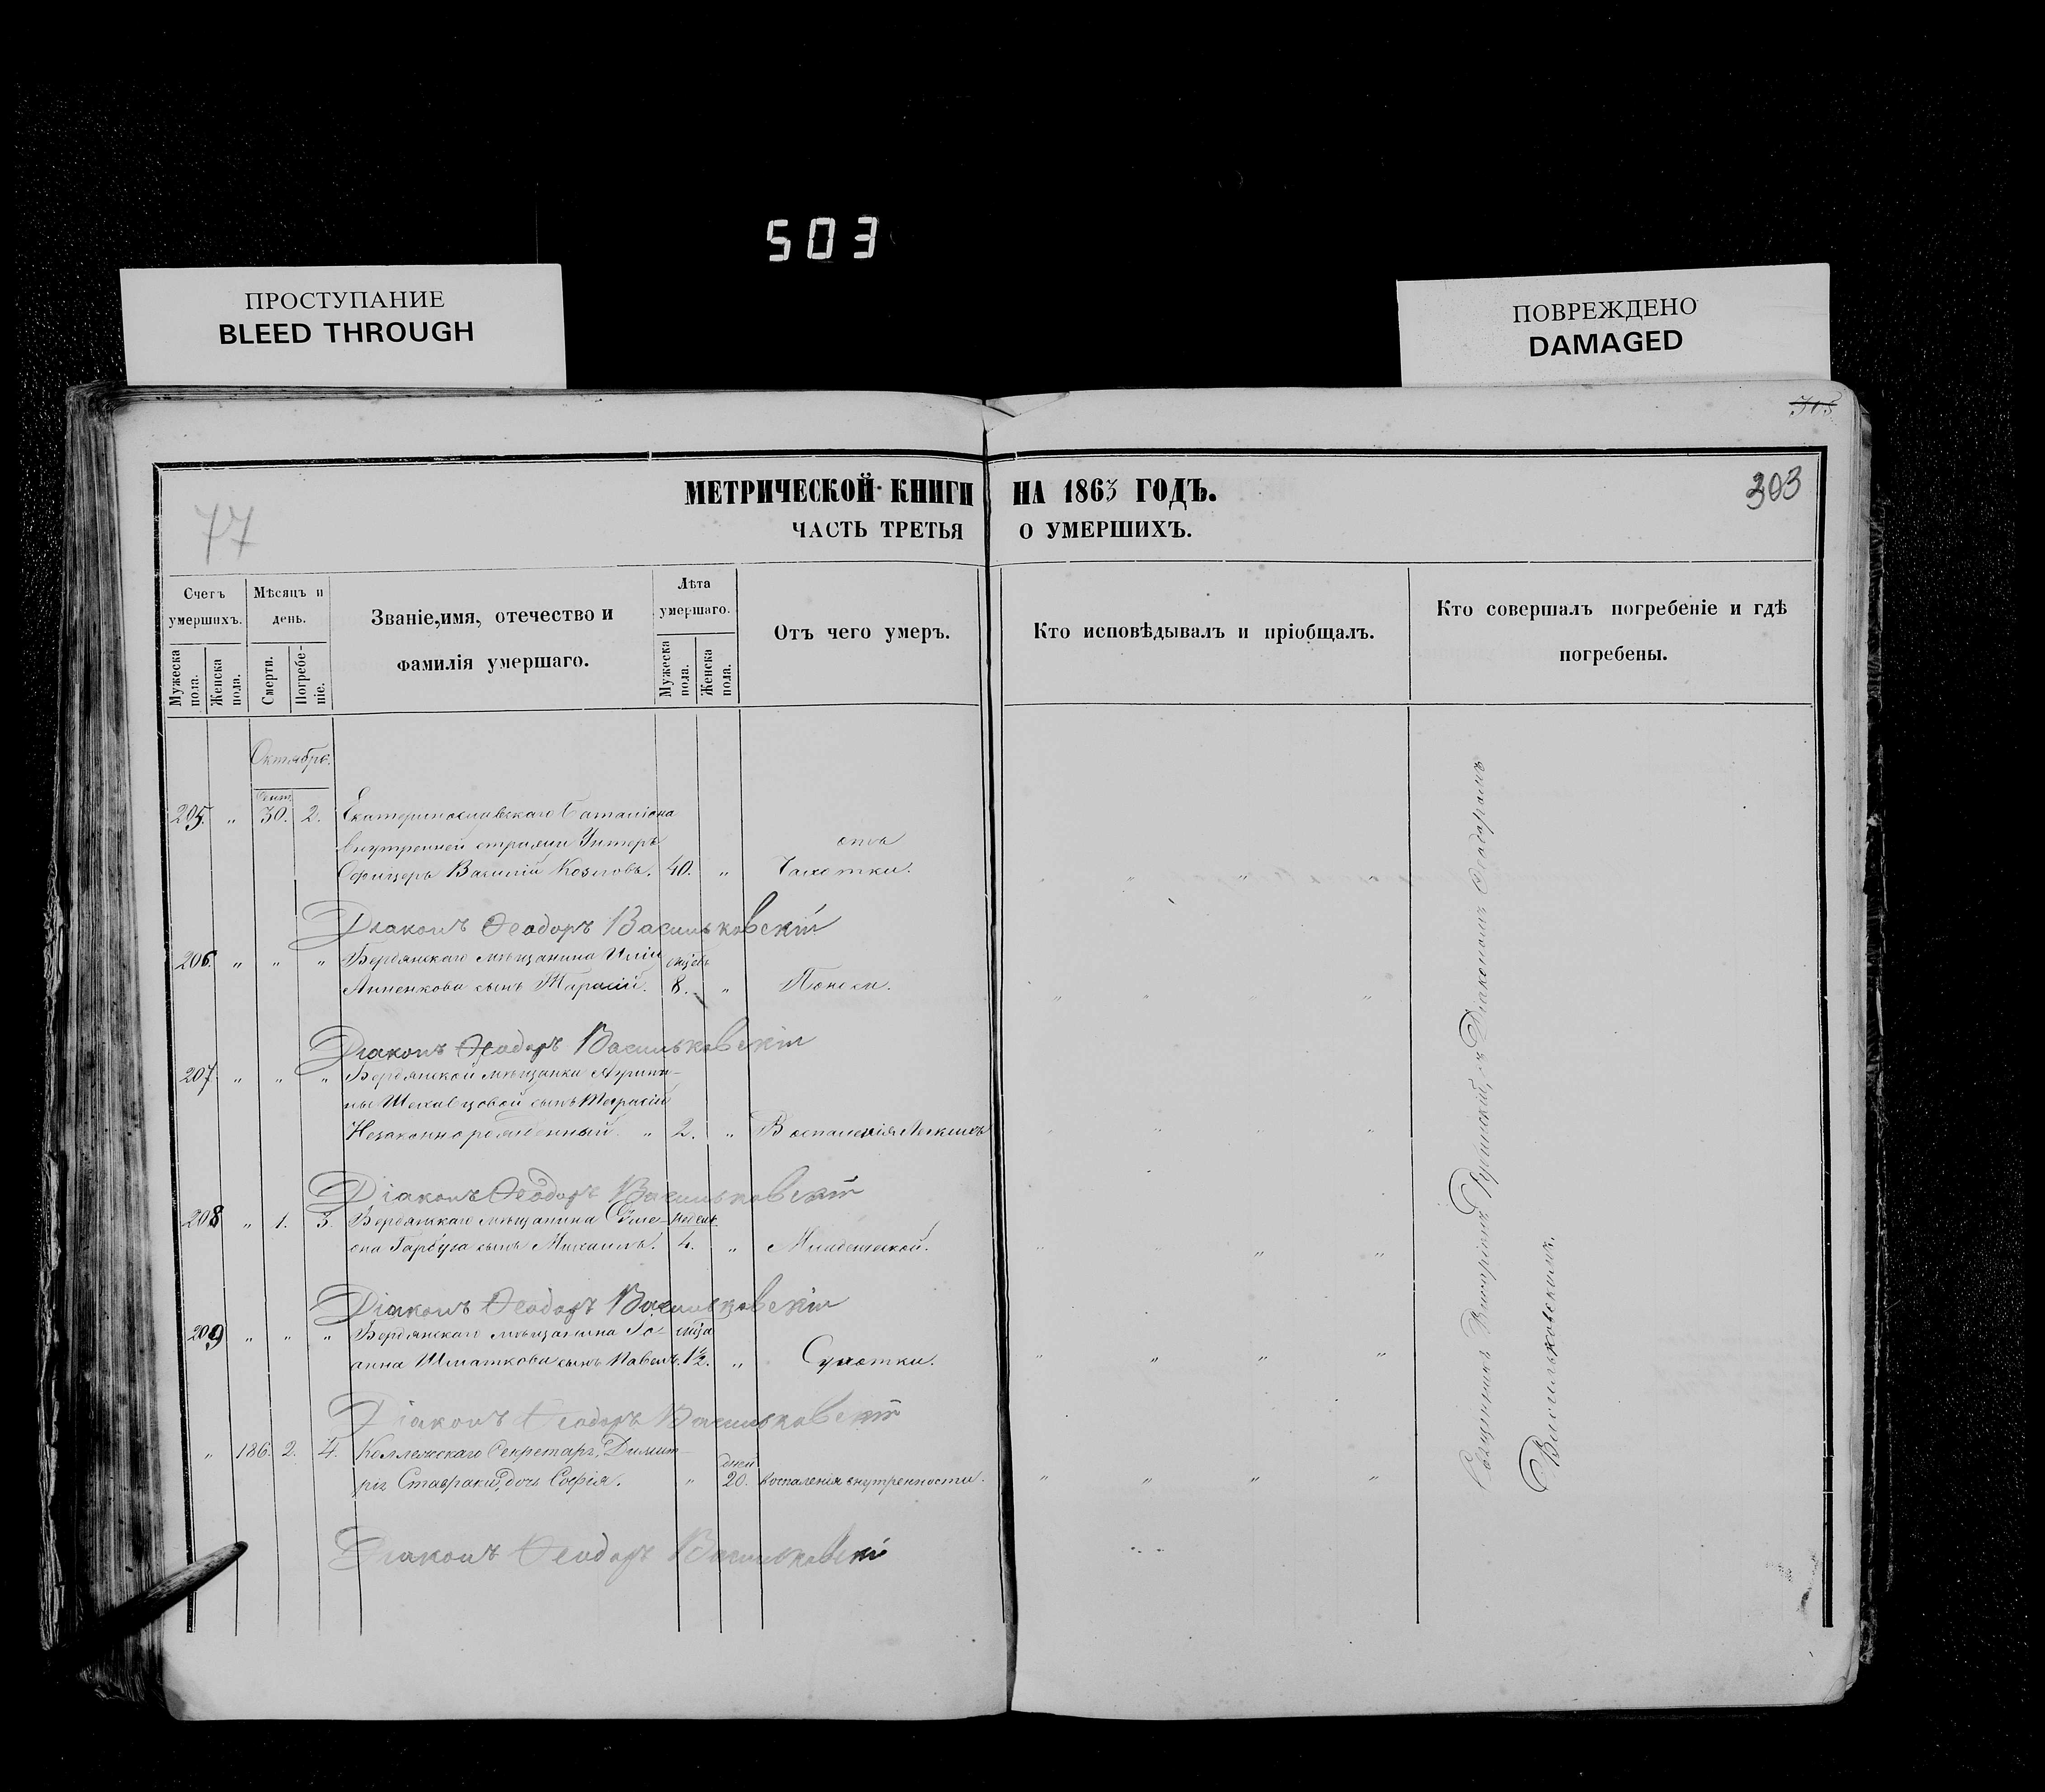 503
ПРОСТУПАНИЕ
BLEED THROUGH
ПОВРЕЖДЕНО
DAMAGED
303
77
МЕТРИЧЕСКОЙ КНИГИ НА 1863 ГОДЪ.
ЧАСТЬ ТРЕТЬЯ О УМЕРШИХЪ.
Счетъ умершихъ.
Мужеска пола.
Женска пола.
Мѣсяцъ и день.
Смерти.
Погребеніе.
Званіе, имя, отечество и
фамилія умершаго.
Лѣта умершаго.
Мужеска пола.
Женска пола.
Отъ чего умеръ.
Кто исповѣдывалъ и пріобщалъ.
Кто совершалъ погребеніе и гдѣ
погребены.
Октябрь.
Сент.
205. " 30. 2. Екатеринославскаго Баталіона
внутренней стражи Унтеръ отъ
Офицеръ Василій Козловъ. 40. " Чахотки.
Діаконъ Ѳеодоръ Васильковскій
206. " " " Бердянскаго мѣщанина Иліи мѣсяцъ
Анненкова сынъ Тарасій. 8. " Поноса.
Діаконъ Ѳеодоръ Васильковскій
207. " " " Бердянской мѣщанки
сынъ
Незаконнорожденный " 2. " Воспаленія Легкихъ
Діаконъ Ѳеодоръ Васильковскій
208 " 1. 3. Бердянскаго мѣщанина Симе- недель
она Гарбуза сынъ Михаилъ. 4. " Младенческой.
Діаконъ Ѳеодоръ Васильковскій
209 " " " Бердянскаго мѣщанина Іо- мѣсяца
анна Шматкова сынъ Павелъ. 1½. " Сухотки.
Діаконъ Ѳеодоръ Васильковскій
" 186. 2. 4. Коллежскаго Секретаря Димит- дней
рія Ставраки, дочь Софія. " 20. воспаленія внутренности.
Діаконъ Ѳеодоръ Васильковскій
Священникъ съ Діакономъ Ѳеодоромъ
Васильковскимъ.